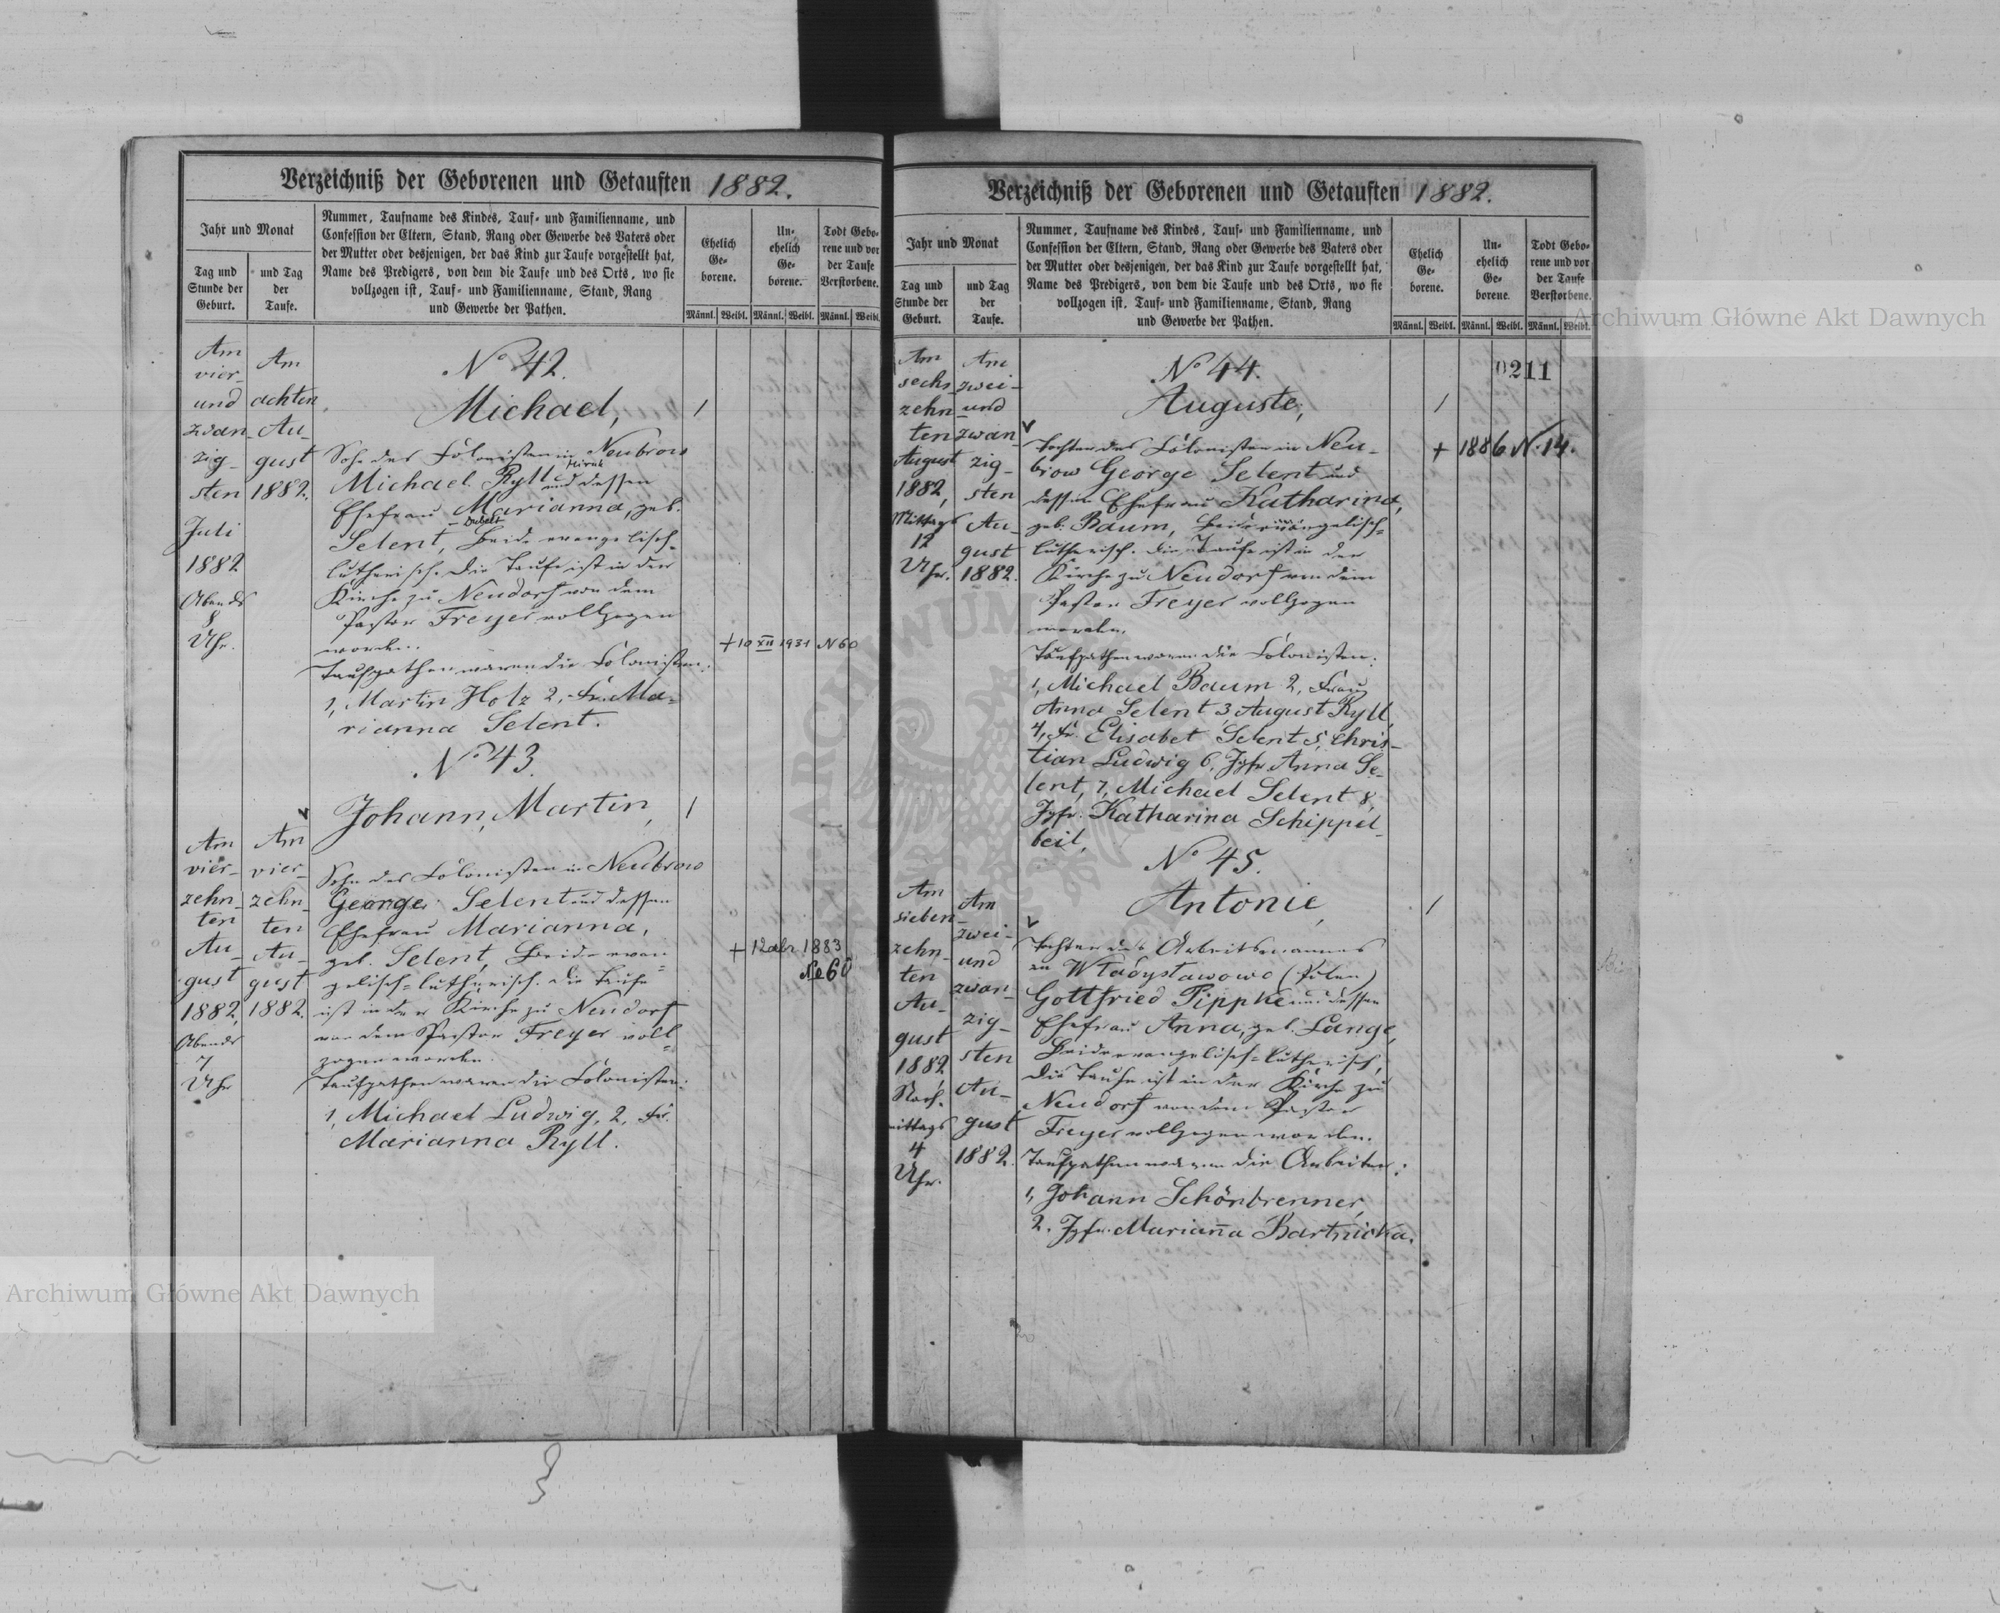 Verzeichniß der Geborenen und Getauften 1882.
Jahr und Monat
Tag und
Stunde der
Geburt.
und Tag
der
Taufe.
Nummer, Taufname des Kindes, Tauf- und Familienname, und
Confession der Eltern, Stand, Rang oder Gewerbe des Vaters oder
der Mutter oder desjenigen, der das Kind zur Taufe vorgestellt hat,
Name des Predigers, von dem die Taufe und des Orts, wo sie
vollzogen ist, Tauf- und Familienname, Stand, Rang
und Gewerbe der Pathen.
Ehelich
Ge-
borene.
Un-
ehelich
Ge-
borene.
Todt Gebo-
rene und vor
der Taufe
Verstorbene.
Männl. Weibl. Männl. Weibl. Männl. Weibl.
Am
vier-
und
zwan-
zig-
sten
Juli
1882
Abends
8
Uhr.
Am
achten
Au-
gust
1882.
No 42.
Michael, 1
Sohn des Colonisten in Neubrow
Michael Ryll und dessen
Ehefrau Marianna, geb.
Selent, Beide evangelisch-
lutherisch. Die Taufe ist in der
Kirche zu Neudorf von dem
Pastor Freyer vollzogen
worden.
+ 10 XII 1931 N 60
Taufpathen waren die Colonisten:
1, Martin Holz 2, Fr. Ma-
rianna Selent.
No 43.
Johann, Martin, 1
Am
vier-
zehn-
ten
Au-
gust
1882,
Abends
7
Uhr
Am
vier-
zehn-
ten
Au-
gust
1882.
Sohn des Colonisten in Neubrow
George Selent und dessen
Ehefrau Marianna,
geb. Selent, Beide evan-
gelisch-lutherisch. Die Taufe
ist in der Kirche zu Neudorf
von dem Pastor Freyer voll-
zogen worden.
+ 12 abr 1883
No 60
Taufpathen waren die Colonisten:
1, Michael Ludwig, 2, Fr.
Marianna Ryll.
Verzeichniß der Geborenen und Getauften 1882.
Jahr und Monat
Tag und
Stunde der
Geburt.
und Tag
der
Taufe.
Nummer, Taufname des Kindes, Tauf- und Familienname, und
Confession der Eltern, Stand, Rang oder Gewerbe des Vaters oder
der Mutter oder desjenigen, der das Kind zur Taufe vorgestellt hat,
Name des Predigers, von dem die Taufe und des Orts, wo sie
vollzogen ist, Tauf- und Familienname, Stand, Rang
und Gewerbe der Pathen.
Ehelich
Ge-
borene.
Un-
ehelich
Ge-
borene.
Todt Gebo-
rene und vor
der Taufe
Verstorbene.
Männl. Weibl. Männl. Weibl. Männl. Weibl.
0211
Am
sechs-
zehn-
ten
August
1882,
Mittags
12
Uhr.
Am
zwei-
und
zwan-
zig-
sten
Au-
gust
1882.
No 44.
Auguste, 1
Tochter des Colonisten in Neu-
brow George Selent und
dessen Ehefrau Katharina,
geb. Baum, Beide evangelisch-
lutherisch. Die Taufe ist in der
Kirche zu Neudorf von dem
Pastor Freyer vollzogen
worden.
+ 1886 N. 14.
Taufpathen waren die Colonisten:
1, Michael Baum 2, Frau
Anna Selent 3, August Ryll,
4, Fr. Elisabet Selent 5, Chris-
tian Ludwig 6, Jgfr. Anna Se-
lent, 7, Michael Selent 8,
Jgfr. Katharina Schippel-
beil,
No 45.
Antonie, 1
Am
sieben-
zehn-
ten
Au-
gust
1882
Nach-
mittags
4
Uhr.
Am
zwei-
und
zwan-
zig-
sten
Au-
gust
1882.
Tochter des Arbeitsmannes
zu Władysławowo (Polen)
Gottfried Pippke und dessen
Ehefrau Anna, geb. Lange,
Beide evangelisch-lutherisch,
Die Taufe ist in der Kirche zu
Neudorf von dem Pastor
Freyer vollzogen worden.
Taufpathen waren die Arbeiter:
1, Johann Schönbrenner,
2. Jgfr. Marianna Bartnicka.
Archiwum Główne Akt Dawnych
Archiwum Główne Akt Dawnych